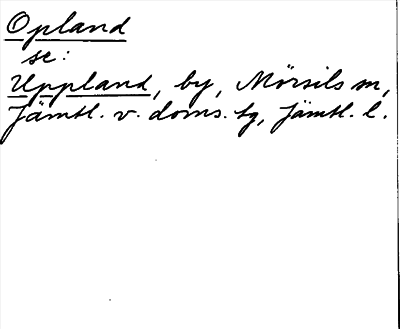 Opland
se:
Uppland, by, Mörsils sn,
Jämtl. v. doms. tg, Jämtl. l.